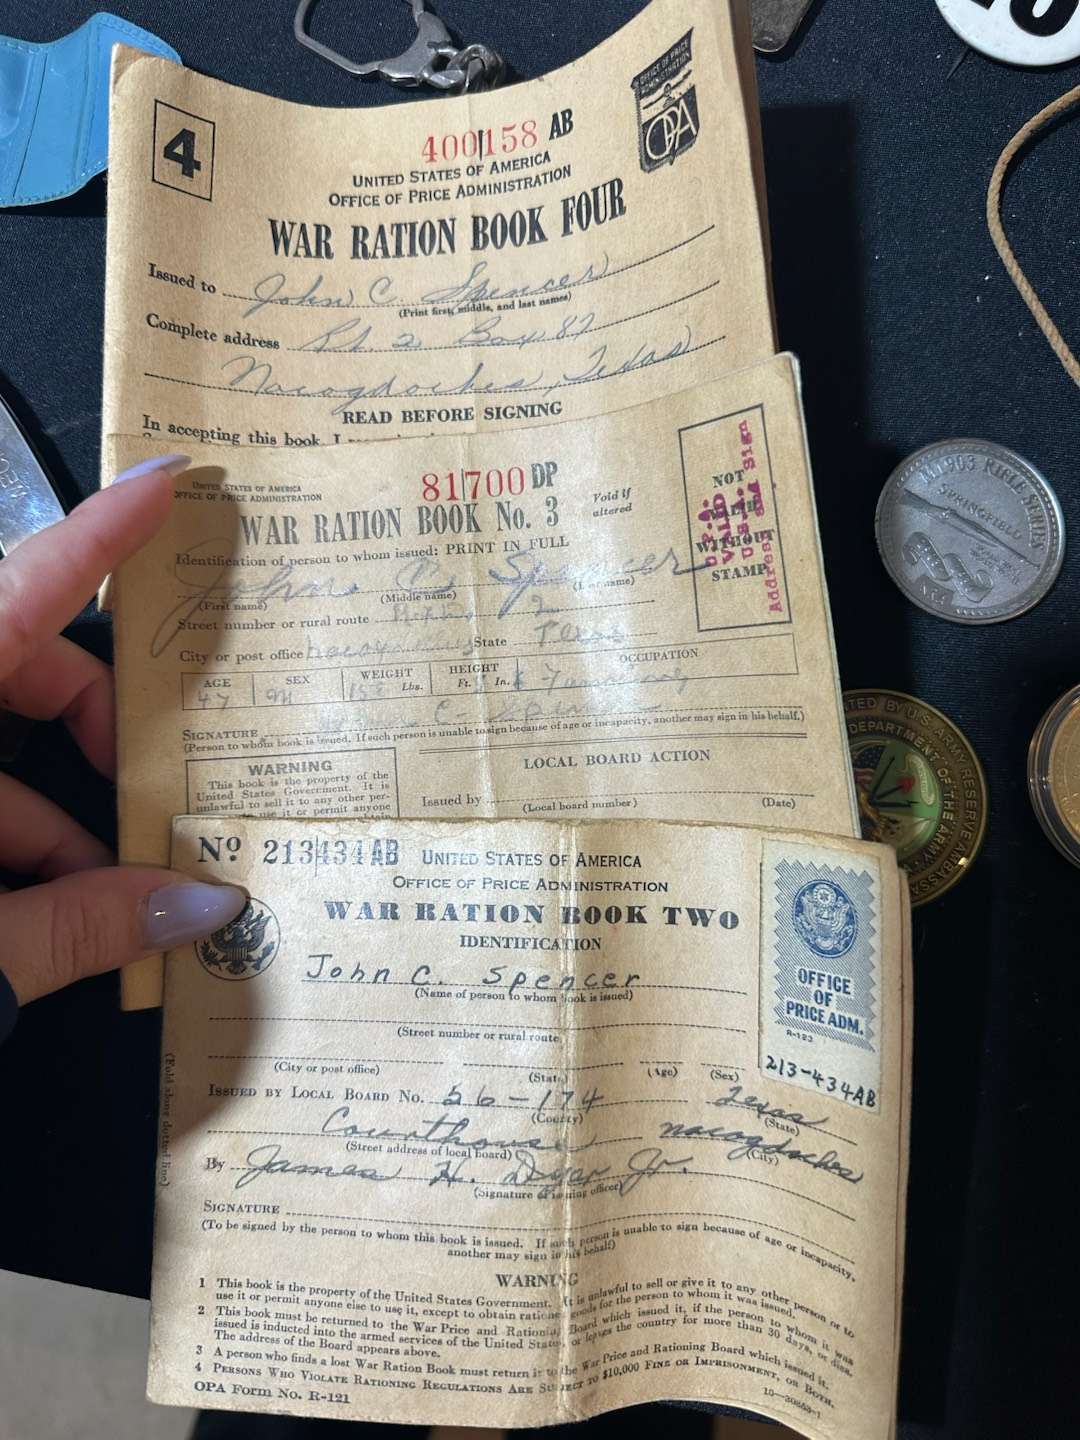 4
400158 AB
OFFICE OF PRICE ADMINISTRATION
OPA
UNITED STATES OF AMERICA
OFFICE OF PRICE ADMINISTRATION
WAR RATION BOOK FOUR
Issued to John C. Spencer
(Print first, middle, and last names)
Complete address Rt. 2 Box 87
Nacogdoches, Texas
READ BEFORE SIGNING
In accepting this book, I
UNITED STATES OF AMERICA
OFFICE OF PRICE ADMINISTRATION
81700 DP
WAR RATION BOOK No. 3
Void if
altered
NOT
VALID
WITHOUT
STAMP
Identification of person to whom issued: PRINT IN FULL
John C. Spencer
(First name) (Middle name)
Street number or rural route 2
City or post office Nacogdoches State Texas
AGE SEX WEIGHT HEIGHT OCCUPATION
47 M Lbs. Ft. In.
SIGNATURE
(Person to whom book is issued. If such person is unable to sign because of age or incapacity, another may sign in his behalf.)
WARNING
This book is the property of the
United States Government. It is
unlawful to sell it to any other per-
use it or permit anyone
LOCAL BOARD ACTION
Issued by
(Local board number) (Date)
No 213434 AB
UNITED STATES OF AMERICA
OFFICE OF PRICE ADMINISTRATION
WAR RATION BOOK TWO
IDENTIFICATION
John C. Spencer
(Name of person to whom book is issued)
(Street number or rural route)
(City or post office) (State) (Age) (Sex)
OFFICE
OF
PRICE ADM.
R-123
213-434AB
ISSUED BY LOCAL BOARD No. 56-174 Texas
(County) (State)
Courthouse Nacogdoches
(Street address of local board) (City)
By James H. Dyar Jr.
(Signature of issuing officer)
SIGNATURE
(To be signed by the person to whom this book is issued. If such person is unable to sign because of age or incapacity,
another may sign in his behalf)
WARNING
1 This book is the property of the United States Government. It is unlawful to sell or give it to any other person or to
use it or permit anyone else to use it, except to obtain rationed goods for the person to whom it was issued.
2 This book must be returned to the War Price and Rationing Board which issued it, if the person to whom it was
issued is inducted into the armed services of the United States, or leaves the country for more than 30 days, or dies.
The address of the Board appears above.
3 A person who finds a lost War Ration Book must return it to the War Price and Rationing Board which issued it.
4 PERSONS WHO VIOLATE RATIONING REGULATIONS ARE SUBJECT TO $10,000 FINE OR IMPRISONMENT, OR BOTH.
OPA FORM No. R-121
(Fold along dotted line)
M1903 RIFLE SERIES
SPRINGFIELD
U.S. ARMY RESERVE
DEPARTMENT OF THE ARMY